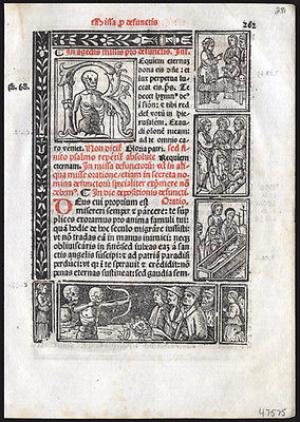 Missa p defunctis
262
In agẽdis missis pro defunctis. Int.
Requiem eternaz
dona eis dñe: et
lux perpetua lu-
ceat eis. ps. Te
decet hymn' de'
i sion: et tibi red
def votũ in hie-
rusalem. Exau-
di oronẽ meam:
ad te omnis ca-
ro veniet. Non dicit Gloria patri. sed fi-
nito psalmo repetit absolute Requiem
eternam. In missa defunctorũ
missa oratione: etiam in secreta no-
mina defunctorũ specialiter exprimere nõ
debem'. In die depositionis defuncti.
Oratio.
Deus cui proprium est
misereri semper et parcere: te sup
plices exoramus pro anima famuli tui:
quã hodie de hoc seculo migrare iussisti:
vt nõ tradas eã in manus inimici: neqz
obliuiscaris in finẽ: sed iubeas eaz a san
ctis angelis suscipi: et ad patriã paradisi
perduci: vt qi i te sperauit et credidit: nõ
penas eternas sustineat: sed gaudia sem
47575